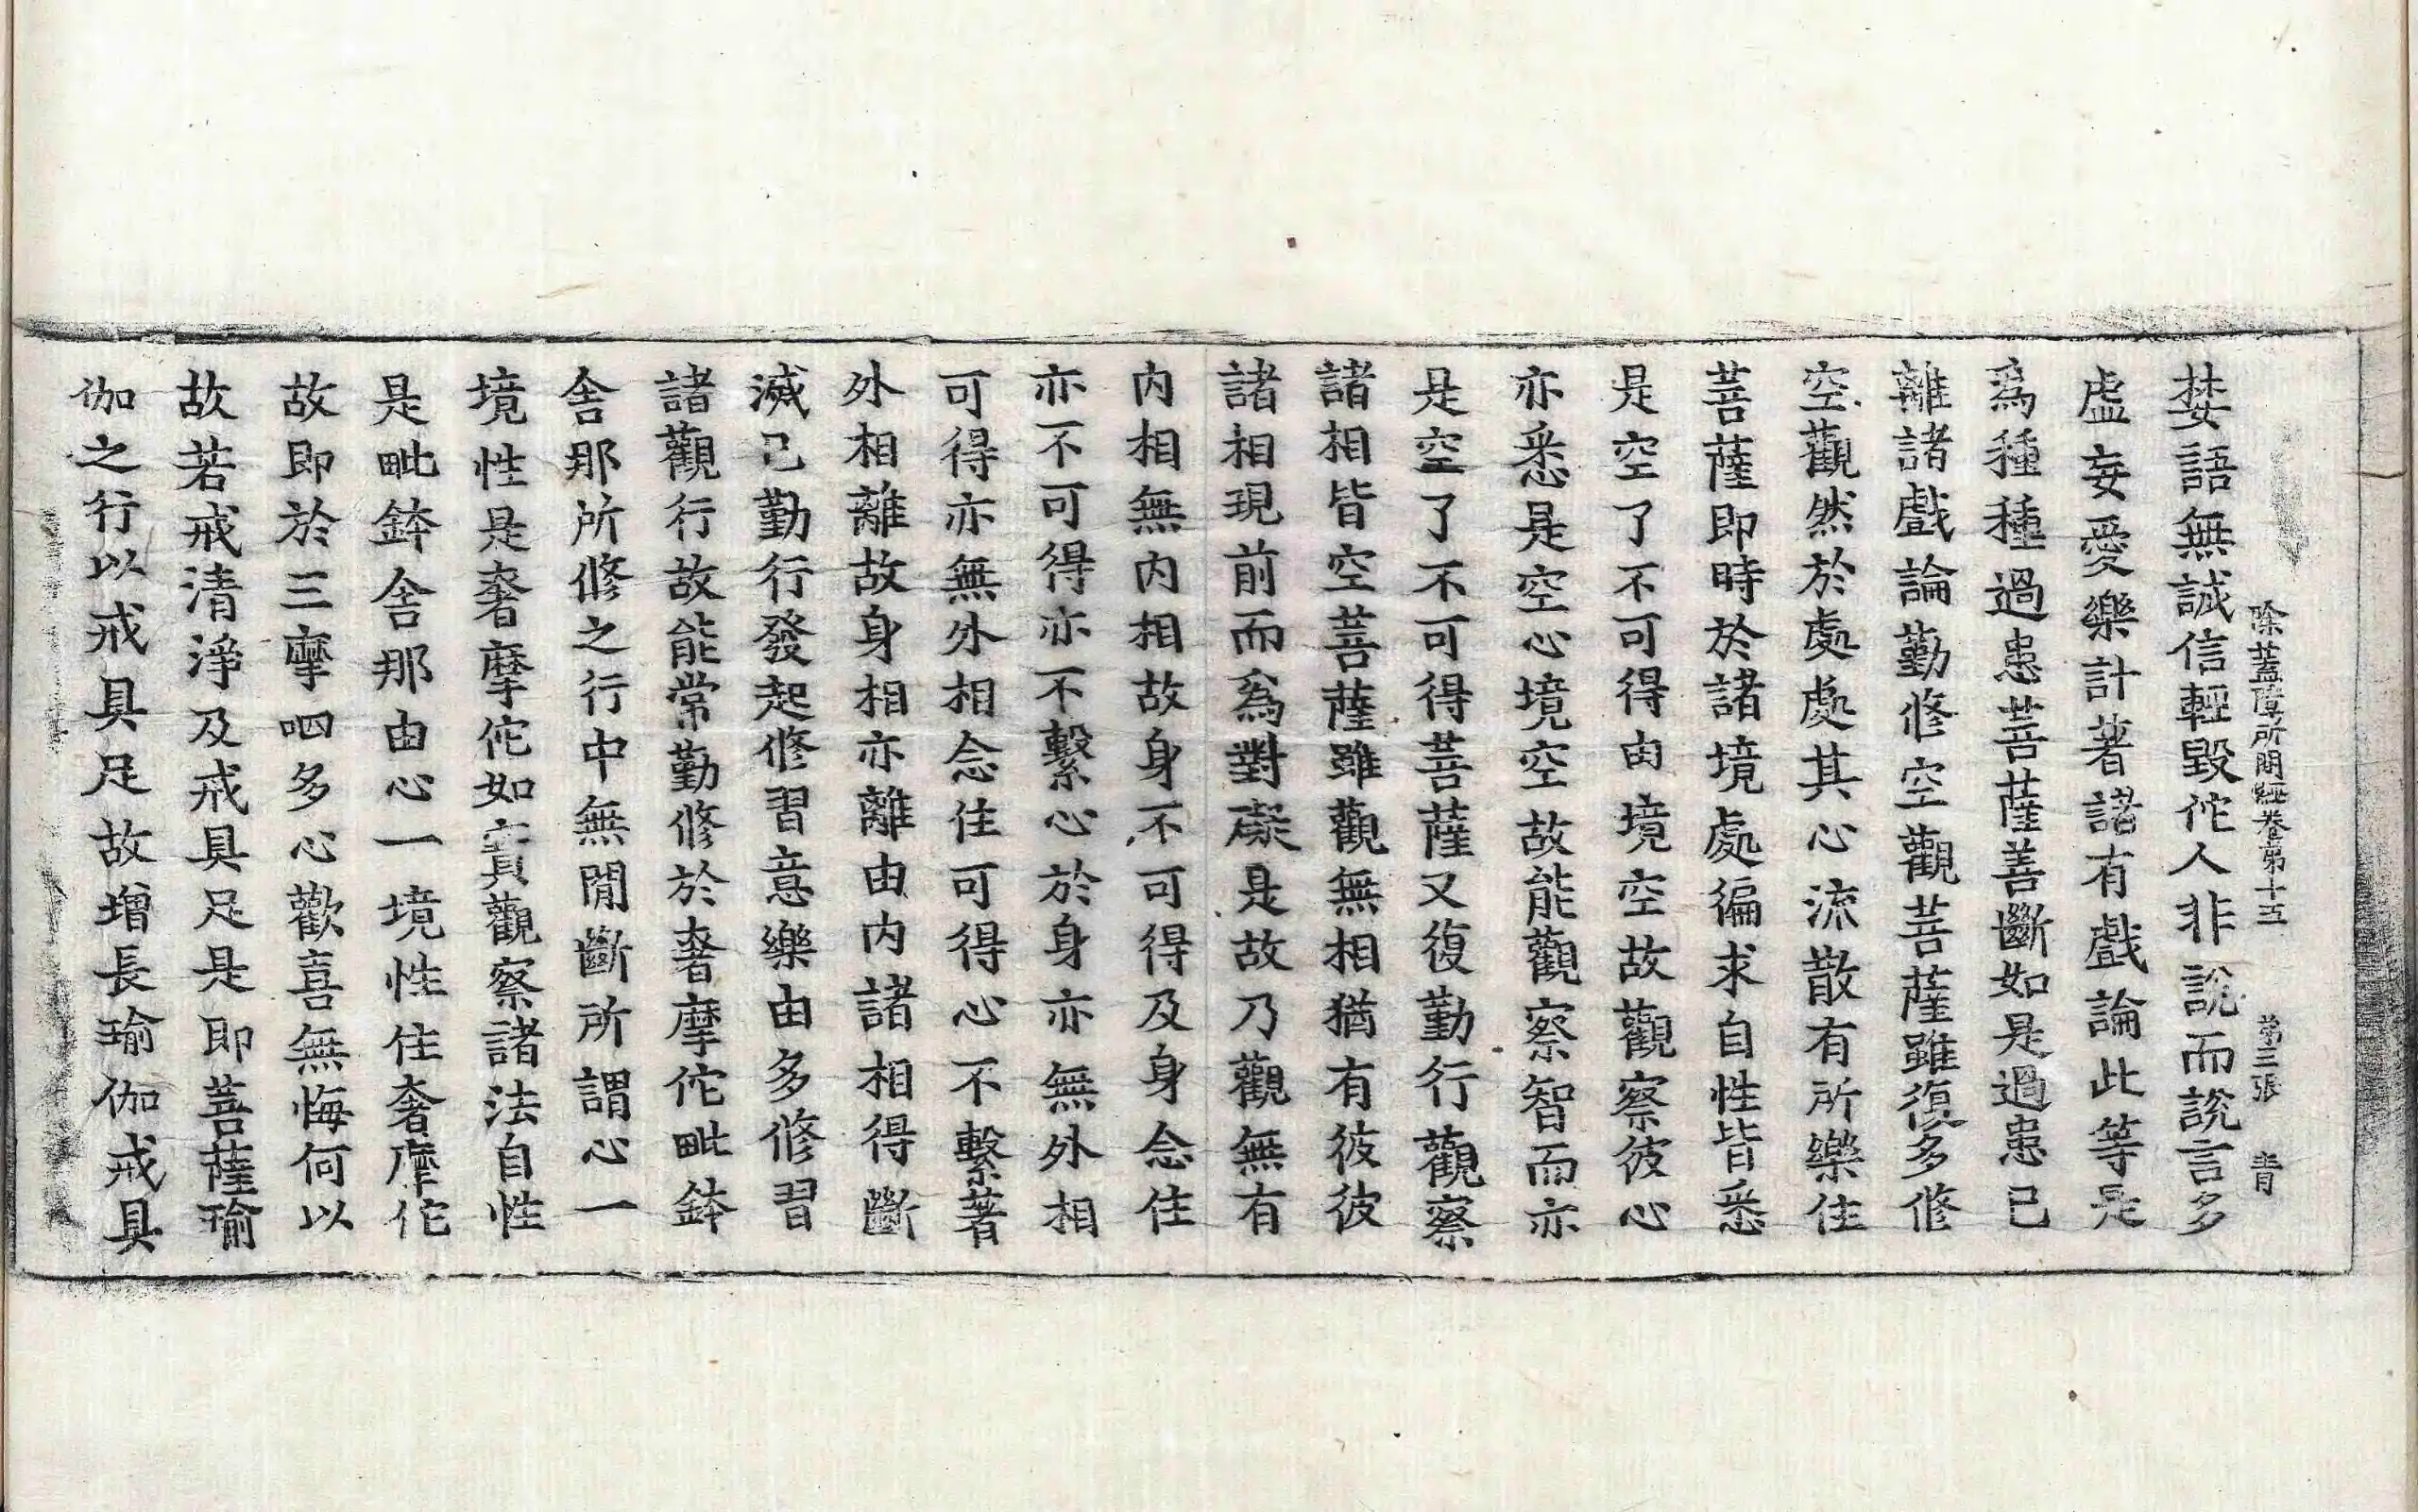 除蓋障所問經卷第十五　第三張　青
婪語無誠信輕毀佗人非說而說言多
虛妄愛樂計著諸有戲論此等是
爲種種過患菩薩善斷如是過患已
離諸戲論勤修空觀菩薩雖復多修
空觀然於處處其心流散有所樂住
菩薩即時於諸境處徧求自性皆悉
是空了不可得由境空故觀察彼心
亦悉是空心境空故能觀察智而亦
是空了不可得菩薩又復勤行觀察
諸相皆空菩薩雖觀無相猶有彼彼
諸相現前而爲對礙是故乃觀無有
内相無内相故身不可得及身念住
亦不可得亦不繫心於身亦無外相
可得亦無外相念住可得心不繫著
外相離故身相亦離由内諸相得斷
滅已勤行發起修習意樂由多修習
諸觀行故能常勤修於奢摩佗毗鉢
舍那所修之行中無閒斷所謂心一
境性是奢摩佗如實觀察諸法自性
是毗鉢舍那由心一境性住奢摩佗
故即於三摩呬多心歡喜無悔何以
故若戒清淨及戒具足是即菩薩瑜
伽之行以戒具足故增長瑜伽戒具